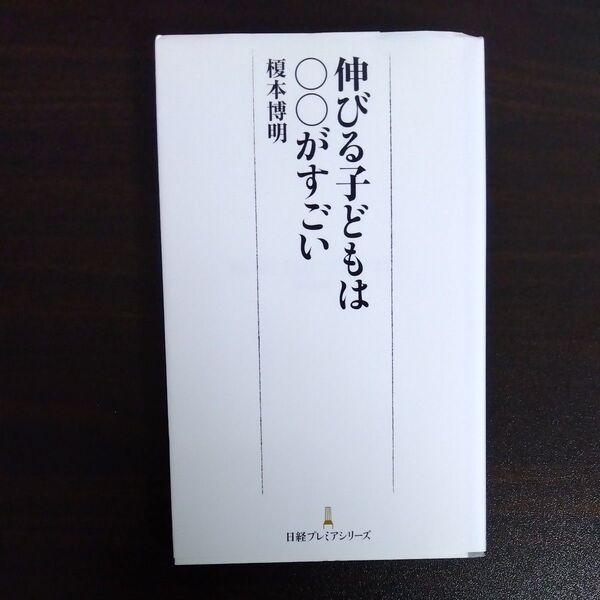 伸びる子どもは
○○がすごい
榎本博明
日経プレミアシリーズ